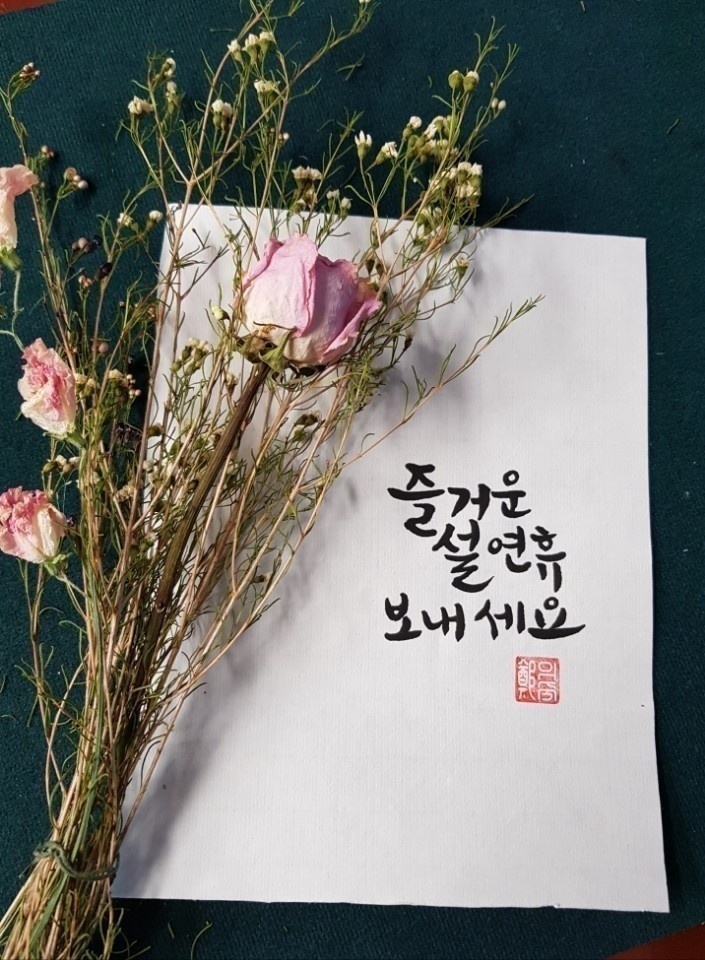 즐거운
설연휴
보내세요